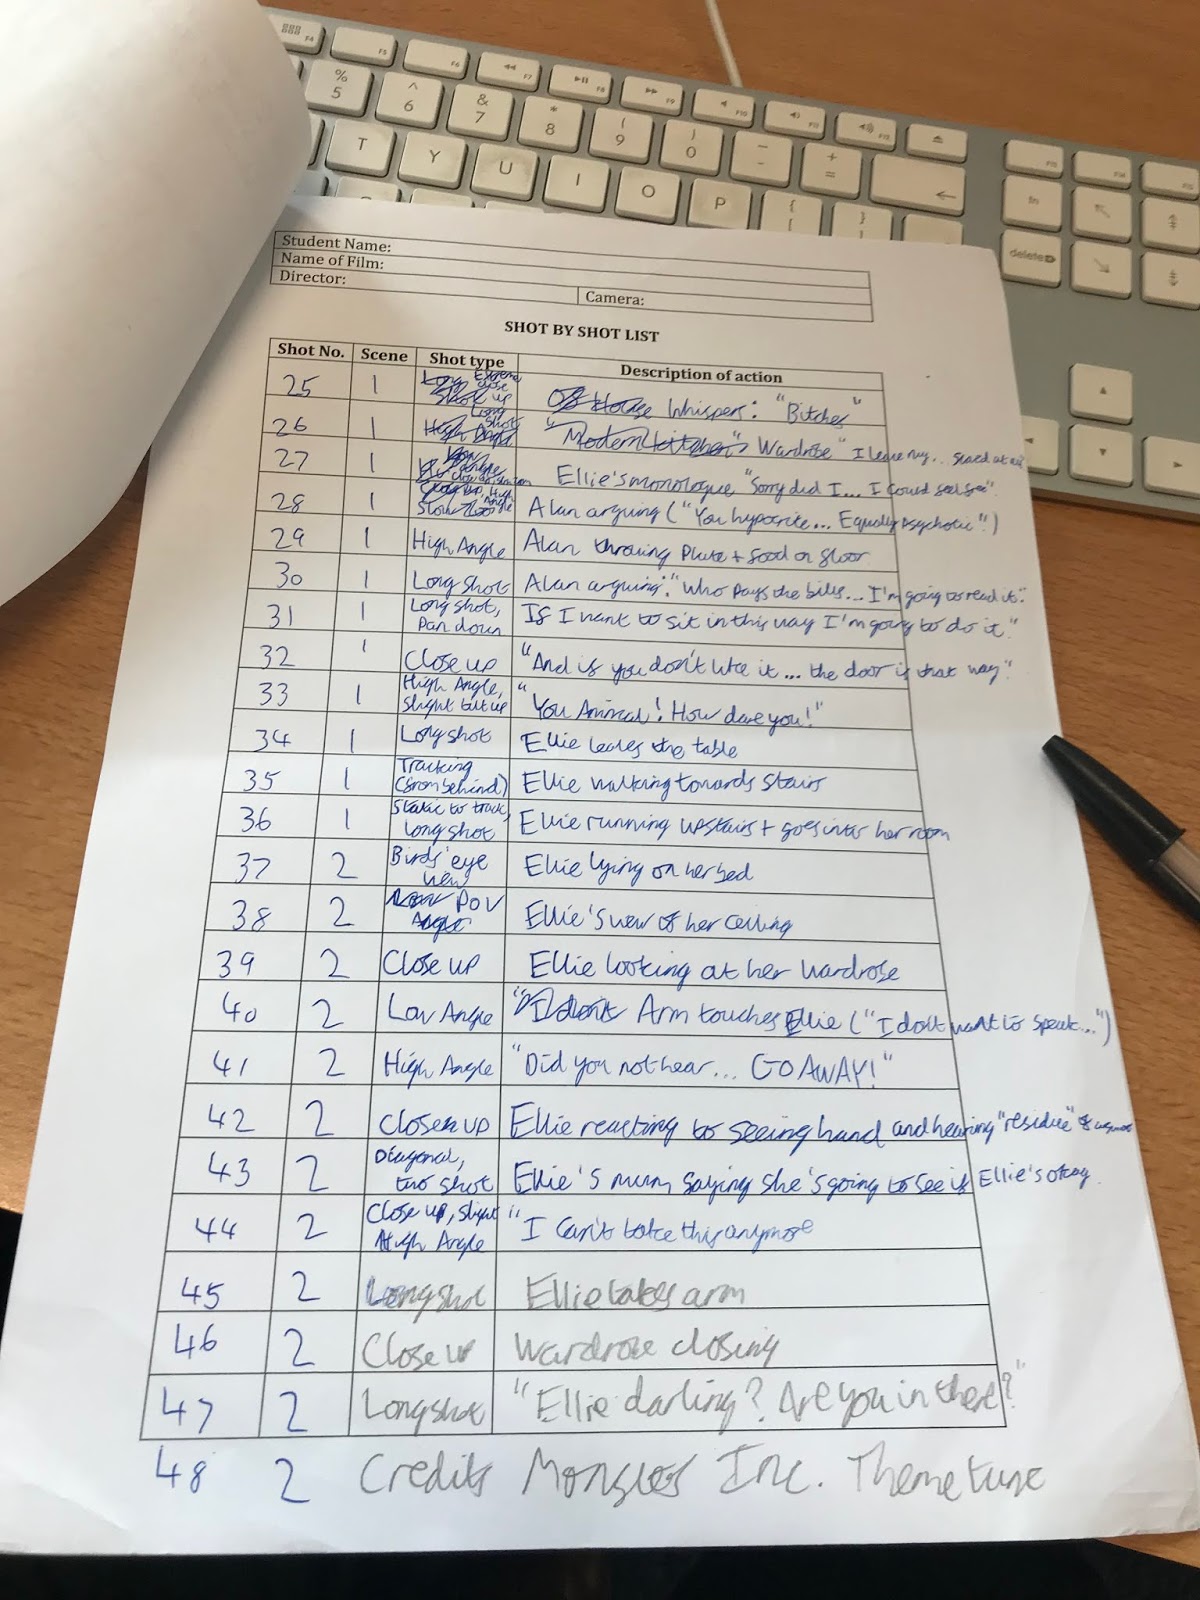 F4 F5 F6 F7 F8 F9 F10 F11 F12
% 5 ^ 6 & 7 * 8 ( 9 ) 0 _ - + =
T Y U I O P { [ } ]
fn
delete
Student Name:
Name of Film:
Director:
Camera:
SHOT BY SHOT LIST
Shot No. Scene Shot type Description of action
25 1 Extreme close up Whispers: "Bitches"
26 1 Long shot Wardrobe "I leave my...
27 1 Ellie's monologue "Sorry did I... I could see"
28 1 Alan arguing ("You hypocrite... Equally psychotic")
29 1 High Angle Alan throwing Plate + food on floor
30 1 Long shot Alan arguing: "Who pays the bills... I'm going to read it".
31 1 Long shot, Pan down If I want to sit in this way I'm going to do it"
32 1 Close up "And if you don't like it... the door is that way"
33 1 High Angle, slight tilt up "You Animal! How dare you!"
34 1 Long shot Ellie leaves the table
35 1 Tracking (from behind) Ellie walking towards stairs
36 1 Static to track, long shot Ellie running upstairs + goes into her room
37 2 Birds' eye view Ellie lying on her bed
38 2 POV Ellie's view of her ceiling
39 2 Close up Ellie looking at her wardrobe
40 2 Low Angle Arm touches Ellie ("I don't want to speak...")
41 2 High Angle "Did you not hear... GO AWAY!"
42 2 Close up Ellie reacting to seeing hand and hearing "residue" of
43 2 Diagonal, two shot Ellie's mum saying she's going to see if Ellie's okay
44 2 Close up, slight High Angle "I can't take this anymore
45 2 Long shot Ellie takes arm
46 2 Close up Wardrobe closing
47 2 Long shot "Ellie darling? Are you in there?"
48 2 Credits Monsters Inc. Theme tune